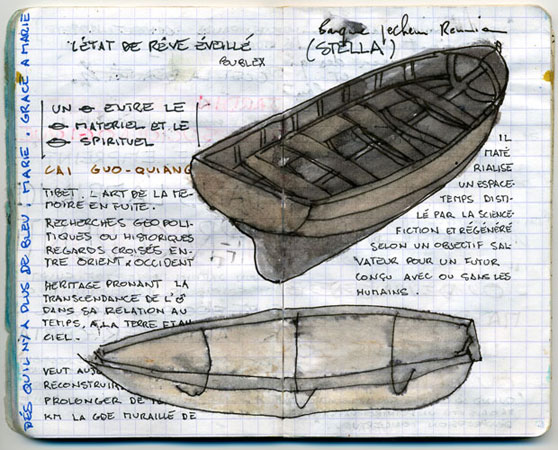 DÈS QU'IL N'Y A PLUS DE BLEU : MARIE. GRÂCE A MARIE
L'ÉTAT DE RÊVE ÉVEILLÉ
POUBLEX
Barque
(STELLA)
UN ENTRE LE
MATERIEL ET LE
SPIRITUEL
CAI GUO-QUIANG
TIBET. L'ART DE LA MÉ-
MOIRE EN FUITE.
RECHERCHES GEOPOLI-
TIQUES OU HISTORIQUES
REGARDS CROISÉS EN-
TRE ORIENT & OCCIDENT
HERITAGE PRONANT LA
TRANSCENDANCE DE L'♂
DANS SA RELATION AU
TEMPS, A LA TERRE ET AU
CIEL.
VEUT AUSSI
RECONSTRUIRE
PROLONGER DE
KM LA GDE MURAILLE DE
IL
MATÉ
RIALISE
UN ESPACE-
TEMPS DISTI-
LÉ PAR LA SCIENCE-
FICTION ET RÉGÉNÉRÉ
SELON UN OBJECTIF SAL-
VATEUR POUR UN FUTUR
CONÇU AVEC OU SANS LES
HUMAINS.